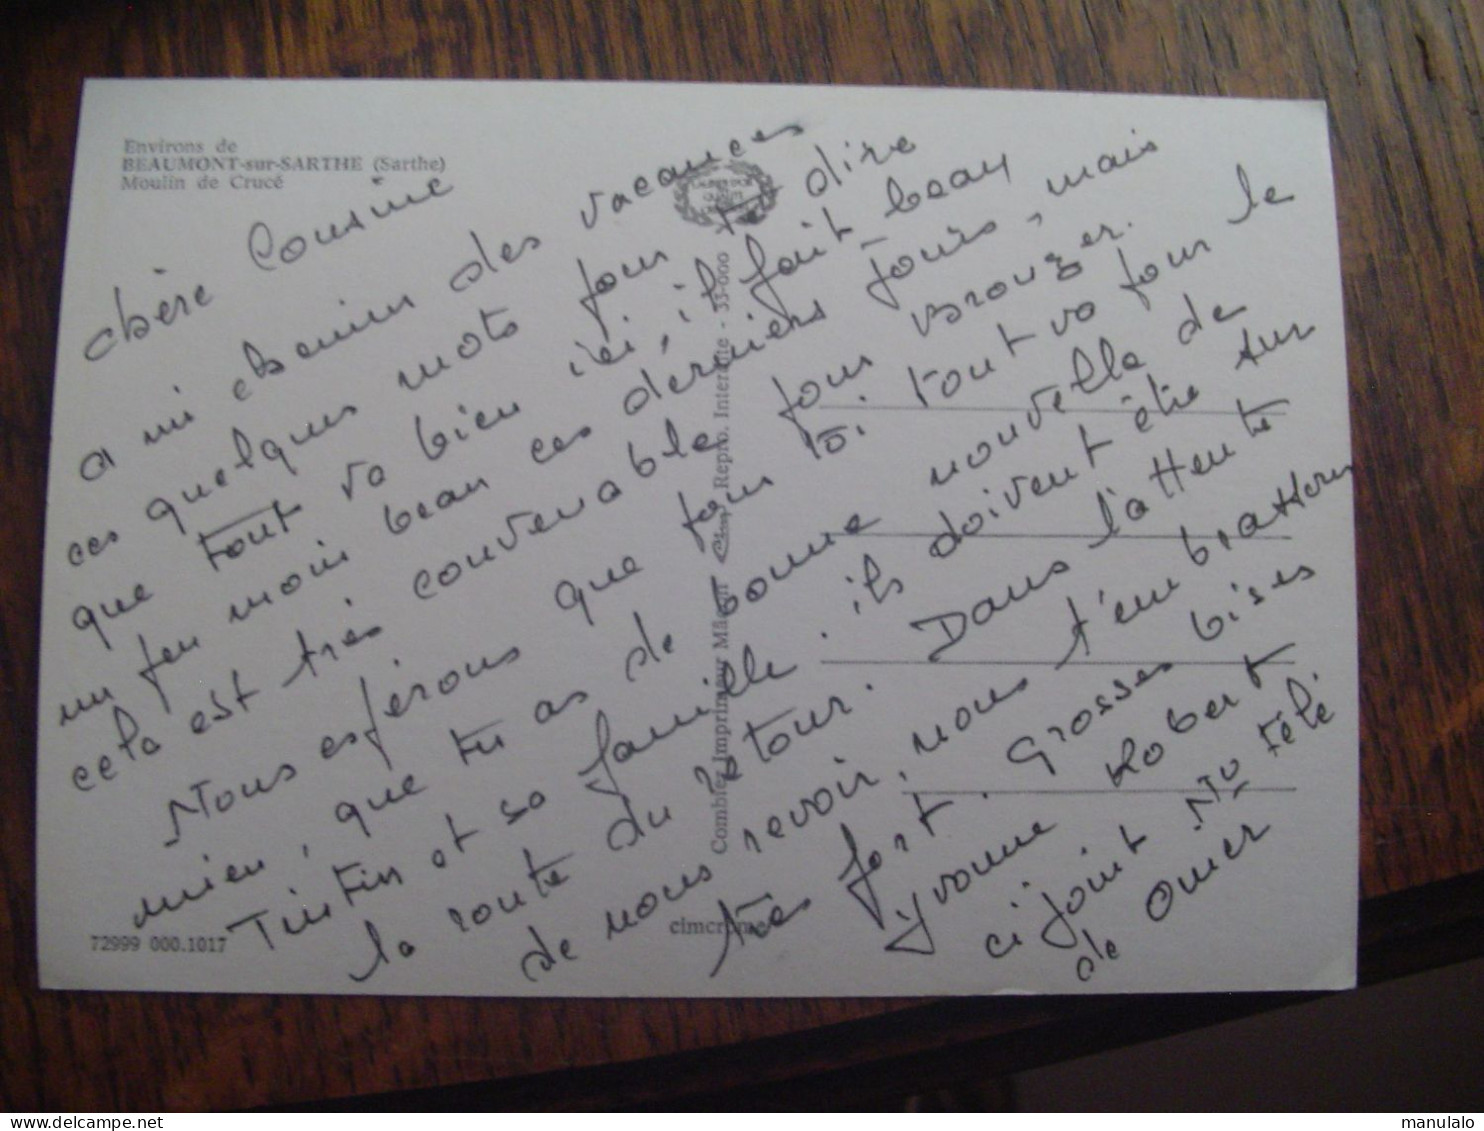 Environs de
BEAUMONT-sur-SARTHE (Sarthe)
Moulin de Crucé
chère Cousine
a mi chemin des vacances
ces quelques mots pour te dire
que tout va bien ici, il fait beau
un peu moin beau ces derniers jours, mais
cela est très convenable pour bronzer.
Nous espérons que pour toi tout va pour le
mien, que tu as de bonne nouvelle de
TinTin et sa famille. ils doivent être sur
la route du retour. Dans l'attente
de nous revoir, nous t'embrassons
très fort. Grosses bises
Yvonne Robert
ci joint No Télé
de Omer
Combier Imprimeur Mâcon Repro. Interdite - 33-000
72999 000.1017
cimcrome
manulalo